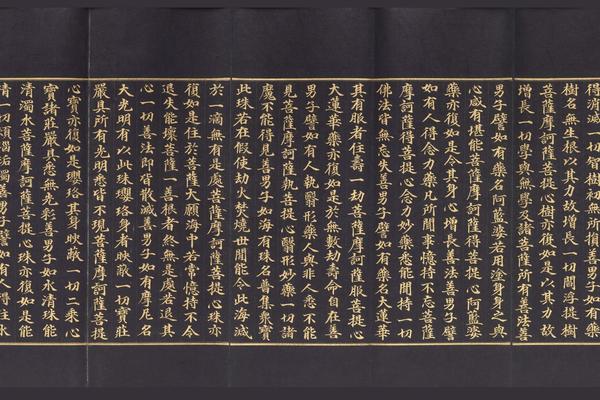 得消滅一切智樹初無所損善男子如有藥
樹名無生根以其力故增長一切閻浮提樹
菩薩摩訶薩菩提心樹亦復如是以其力故
增長一切學與無學及諸菩薩所有善法善
男子譬如有藥名阿藍婆若用塗身身之與
心咸有堪能菩薩摩訶薩得菩提心阿藍婆
藥亦復如是令其身心增長善法善男子譬
如有人得念力藥凡所聞事憶持不忘菩薩
摩訶薩得菩提心念力妙藥悉能聞持一切
佛法皆無忘失善男子譬如有藥名大蓮華
其有服者住壽一劫菩薩摩訶薩服菩提心
大蓮華藥亦復如是於無數劫壽命自在善
男子譬如有人執翳形藥人與非人悉不能
見菩薩摩訶薩執菩提心翳形妙藥一切諸
魔不能得見善男子如海有珠名普集衆寶
此珠若在假使劫火焚燒世間能令此海減
於一滴無有是處菩薩摩訶薩菩提心珠亦
復如是住於菩薩大願海中若常憶持不令
退失能壞菩薩一善根者終無是處若退其
心一切善法即皆散滅善男子如有摩尼名
大光明有以此珠瓔珞身者映蔽一切寶莊
嚴具所有光明悉皆不現菩薩摩訶薩菩提
心寶亦復如是瓔珞其身映蔽一切二乘心
寶諸莊嚴具悉無光彩善男子如水清珠能
清濁水菩薩摩訶薩菩提心珠亦復如是能
清一切煩惱垢濁善男子譬如有人得住水